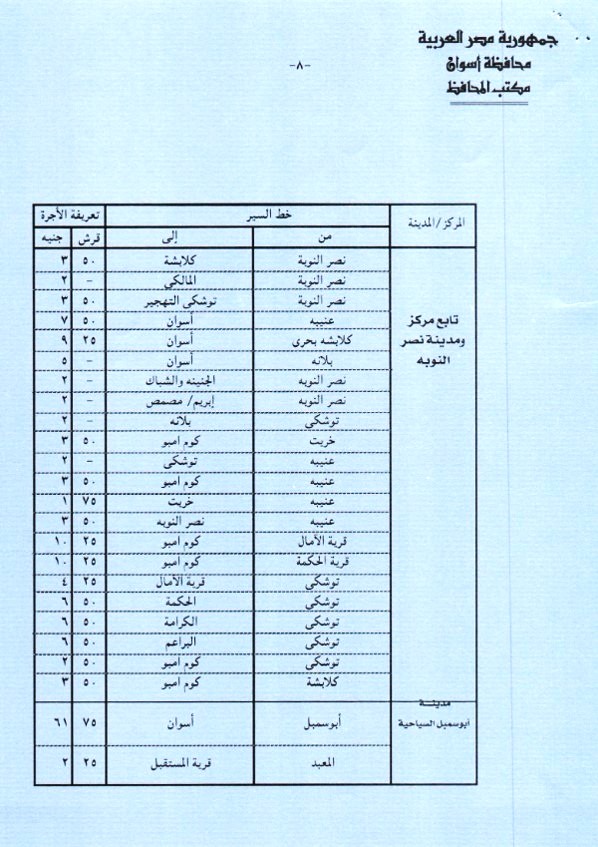 جمهورية مصر العربية
محافظة أسوان
مكتب المحافظ
-٨-
المركز/المدينة خط السير تعريفة الأجرة
من إلى قرش جنيه
نصر النوبة كلابشة ٥٠ ٣
نصر النوبة المالكى - ٢
نصر النوبة توشكى التهجير ٥٠ ٣
تابع مركز ومدينة نصر النوبه
عنيبه أسوان ٥٠ ٧
كلابشه بحرى أسوان ٢٥ ٩
بلانه أسوان - ٥
نصر النوبه الجنينه والشباك - ٢
نصر النوبه إبريم/ مصمص - ٢
توشكى بلانه - ٢
خريت كوم امبو ٥٠ ٣
عنيبه توشكى - ٢
عنيبه كوم امبو ٥٠ ٣
عنيبه خريت ٧٥ ١
عنيبه نصر النوبه ٥٠ ٣
قرية الآمال كوم امبو ٢٥ ١٠
قرية الحكمة كوم امبو ٢٥ ١٠
توشكى قرية الآمال ٢٥ ٤
توشكى الحكمة ٥٠ ٦
توشكى الكرامة ٥٠ ٦
توشكى البراعم ٥٠ ٦
توشكى كوم امبو ٥٠ ٢
كلابشة كوم امبو ٥٠ ٣
مدينة أبوسمبل السياحية
أبوسمبل أسوان ٧٥ ٦١
المعبد قرية المستقبل ٢٥ ٢